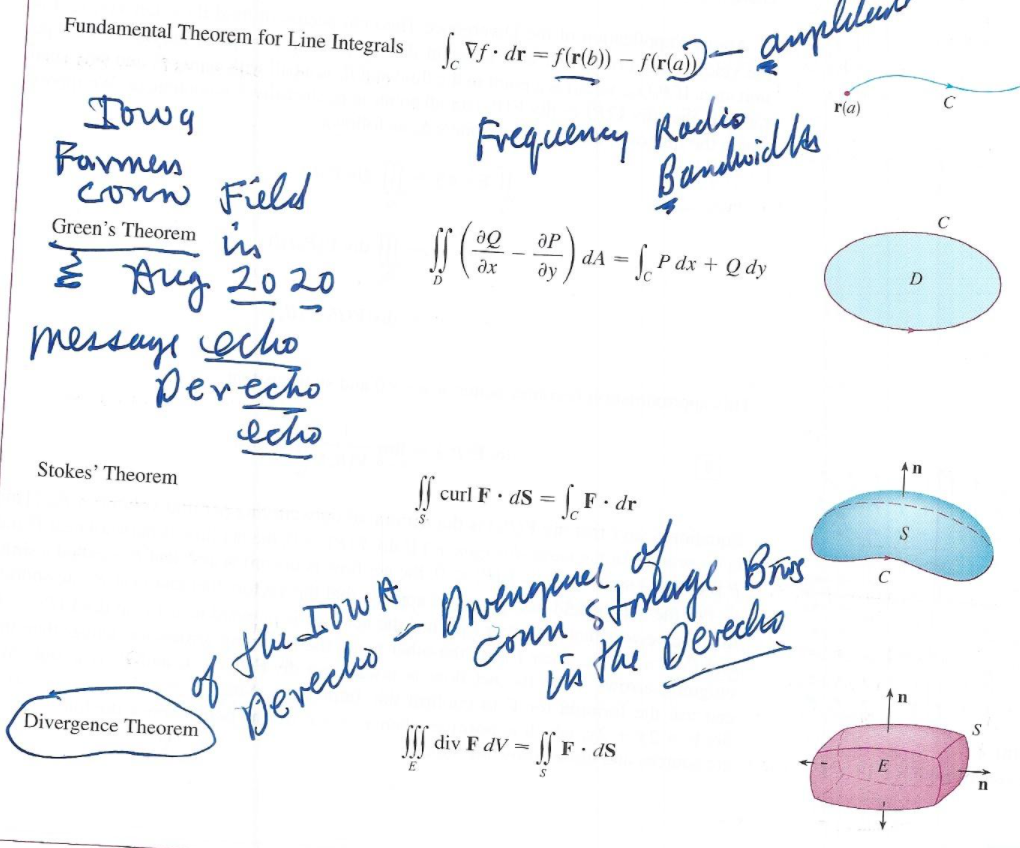 Fundamental Theorem for Line Integrals
∫_C ∇f · dr = f(r(b)) − f(r(a)) — amplitude
r(a)
C
Iowa
Farmers
corn Field
in
Aug. 2020
message echo
Derecho
echo
Frequency Radio
Bandwidths
Green's Theorem
∬_D (∂Q/∂x − ∂P/∂y) dA = ∫_C P dx + Q dy
C
D
Stokes' Theorem
∬_S curl F · dS = ∫_C F · dr
n
S
C
of the IOWA
Derecho – Divergence of
Corn Storage Bins
in the Derecho
Divergence Theorem
∭_E div F dV = ∬_S F · dS
n
S
E
n